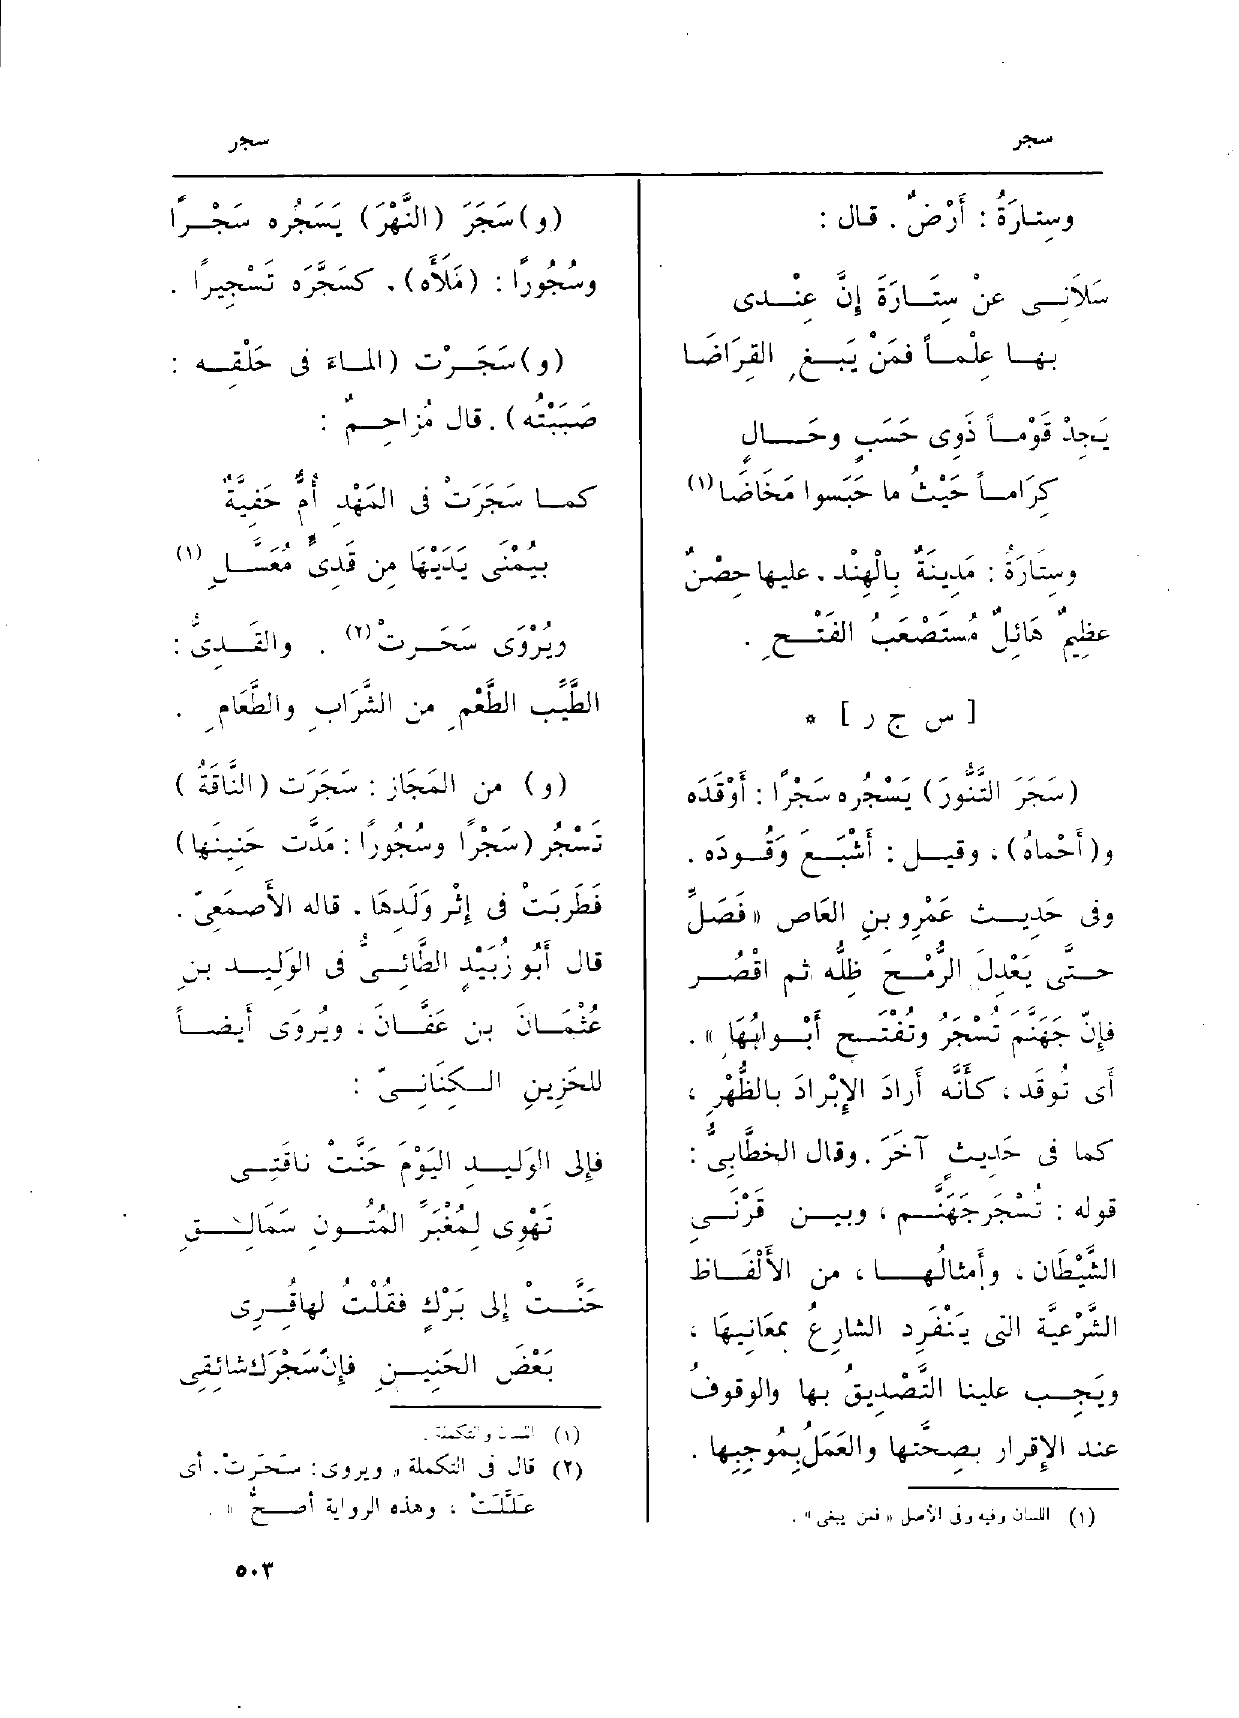 سجر
سجر
وسِتارَةُ : أَرْضٌ . قال :
سَلاَنِى عنْ سِتَارَةَ إِنَّ عِنْدى
بِها عِلْماً فمَنْ يَبغِ القِرَاضَا
يَجِدْ قَوْماً ذَوِى حَسَبٍ وحَالٍ
كِرَاماً حَيْثُ ما حَبَسوا مَخَاضَا (١)
وسِتَارَةُ : مَدِينَةٌ بالْهِنْد . عليها حِصْنٌ
عظِيمٌ هَائِلٌ مُستَصْعَبُ الفَتْحِ .
[ س ج ر ] *
(سَجَرَ التَّنُّورَ) يَسْجُره سَجْرًا : أَوْقَدَه
و(أَحْمَاهُ) ، وقيل : أَشْبَعَ وَقُودَه .
وفى حَدِيث عَمْرِو بنِ العَاصِ « فَصَلِّ
حتَّى يَعْدِلَ الرُّمْحَ ظِلُّه ثم اقْصُر
فإِنَّ جَهَنَّم تُسْجَرُ وتُفْتَح أَبْوابُهَا » .
أَى تُوقَد ، كأَنَّه أَرادَ الإِبْرَادَ بالظُّهْرِ ،
كما فى حَدِيثٍ آخَرَ . وقال الخطَّابِىُّ :
قوله : تُسْجَر جَهَنَّم ، وبين قَرْنَىِ
الشَّيْطَان ، وأَمثالُها ، من الأَلْفَاظ
الشَّرْعِيَّة التى يَنْفَرِد الشارعُ بمَعَانِيهَا ،
ويَجِب علينا التَّصْدِيقُ بها والوقوفُ
عند الإِقرار بصِحَّتها والعَمَلُ بمُوجِبِها .
(١) اللسان وفيه وفى الأصل « فمن يبغى » .
(و) سَجَرَ (النَّهْرَ) يَسْجُره سَجْرًا
وسُجُورًا : (مَلَأَه) ، كسَجَّرَه تَسْجِيرًا .
(و) سَجَرْت (الماءَ فى حَلْقِه :
صَبَبْتُه) . قال مُزاحِمٌ :
كما سَجَرَتْ فى المَهْدِ أُمٌّ حَفِيَّةٌ
بِيُمْنَى يَدَيْهَا مِن قَدِىٍّ مُعَسَّلِ (١)
ويُرْوَى سَحَرتْ (٢) . والقَدِىُّ :
الطَّيِّب الطَّعْمِ من الشَّرَابِ والطَّعَامِ .
(و) من المَجَازِ : سَجَرَت (النَّاقَةُ)
تَسْجُر (سَجْرًا وسُجُورًا : مَدَّت حَنِينَها)
فَطَرِبَتْ فى إِثْرِ وَلَدِهَا . قاله الأَصمَعِىّ .
قال أَبُو زُبَيْدٍ الطَّائِىُّ فى الوَلِيد بنِ
عُثْمَانَ بن عَفَّانَ ، ويُرْوَى أَيضاً
للحَزِينِ الكِنَانِىّ :
فإِلى الوَلِيدِ اليَوْمَ حَنَّتْ ناقَتِى
تَهْوِى لِمُغْبَرِّ المُتُونِ سَمَالِقِ
حَنَّتْ إِلى بَرْكٍ فقُلْتُ لها قِرِى
بَعْضَ الحَنِينِ فإِنّ سَجْرَكِ شائِقِى
(١) اللسان والتكملة .
(٢) قال فى التكملة « ويروى : سَحَرَتْ . أى
عَلَّلَتْ ، وهذه الرواية أصحُّ » .
٥٠٣